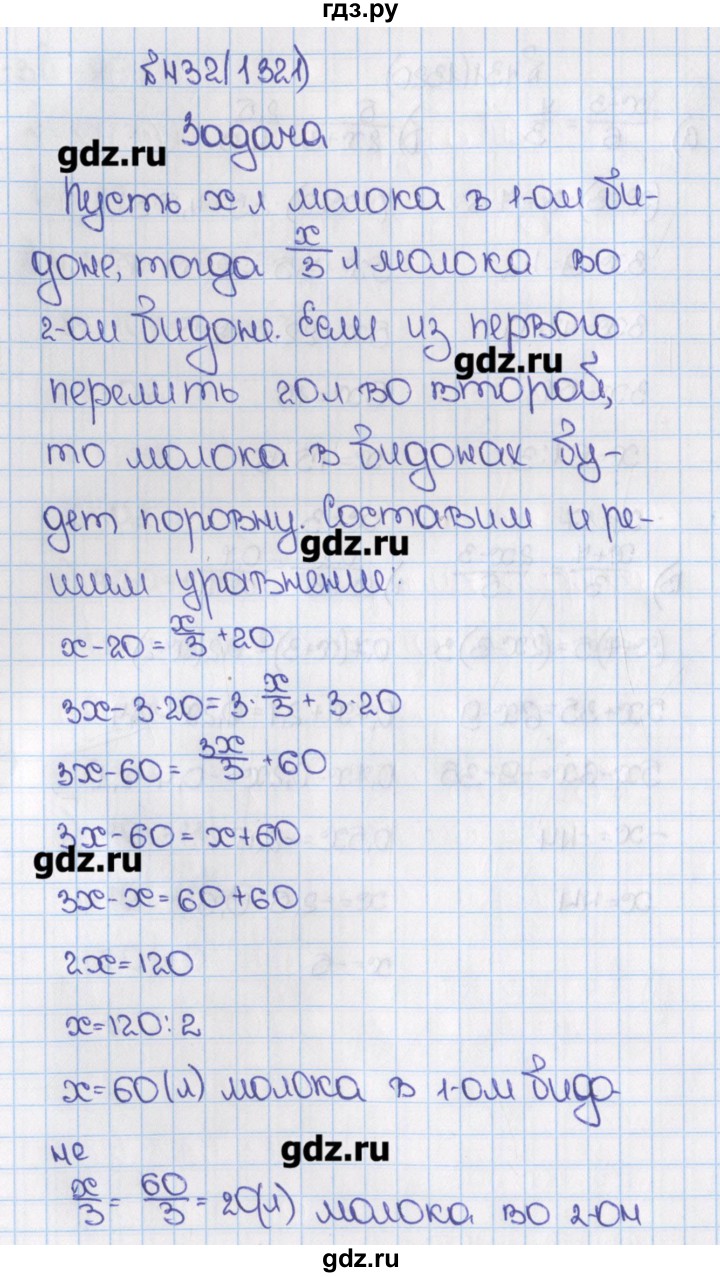 гдз.ру
№432(1321)
Задача
gdz.ru
Пусть x л молока в 1-ом би-
доне, тогда x/3 л молока во
2-ом бидоне. Если из первого
gdz.ru
перелить 20л во второй,
то молока в бидонах бу-
дет поровну. Составим и ре-
gdz.ru
шим уравнение:
x-20=x/3+20
3x-3·20=3·x/3+3·20
3x-60=3x/3+60
3x-60=x+60
gdz.ru
3x-x=60+60
2x=120
x=120:2
x=60(л) молока в 1-ом бидо
не
gdz.ru
x/3=60/3=20(л) молока во 2-ом
gdz.ru